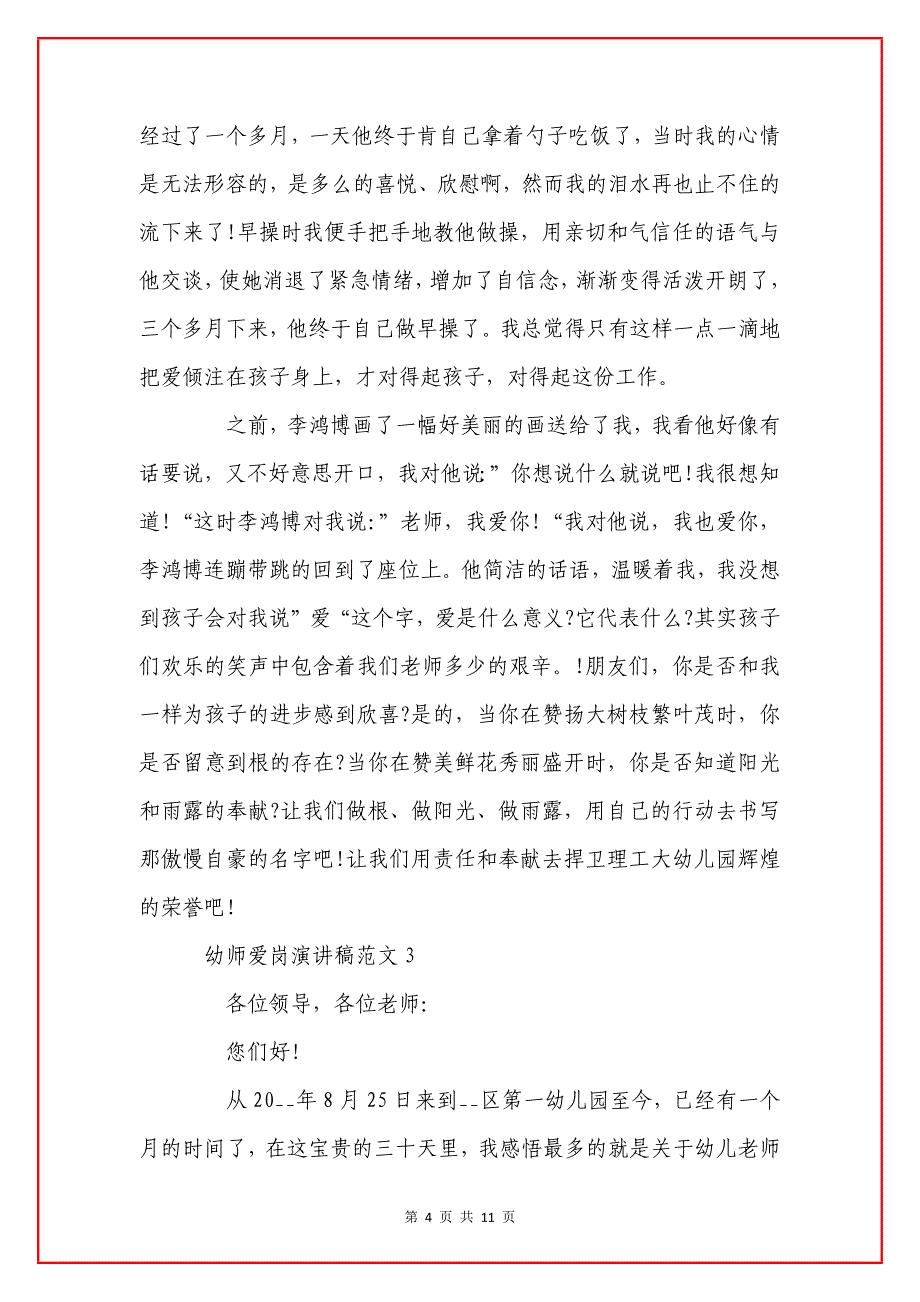 经过了一个多月，一天他终于肯自己拿着勺子吃饭了，当时我的心情
是无法形容的，是多么的喜悦、欣慰啊，然而我的泪水再也止不住的
流下来了!早操时我便手把手地教他做操，用亲切和气信任的语气与
他交谈，使她消退了紧急情绪，增加了自信念，渐渐变得活泼开朗了，
三个多月下来，他终于自己做早操了。我总觉得只有这样一点一滴地
把爱倾注在孩子身上，才对得起孩子，对得起这份工作。
之前，李鸿博画了一幅好美丽的画送给了我，我看他好像有
话要说，又不好意思开口，我对他说:”你想说什么就说吧!我很想知
道!“这时李鸿博对我说:”老师，我爱你!“我对他说，我也爱你，
李鸿博连蹦带跳的回到了座位上。他简洁的话语，温暖着我，我没想
到孩子会对我说”爱“这个字，爱是什么意义?它代表什么?其实孩子
们欢乐的笑声中包含着我们老师多少的艰辛。!朋友们，你是否和我
一样为孩子的进步感到欣喜?是的，当你在赞扬大树枝繁叶茂时，你
是否留意到根的存在?当你在赞美鲜花秀丽盛开时，你是否知道阳光
和雨露的奉献?让我们做根、做阳光、做雨露，用自己的行动去书写
那傲慢自豪的名字吧!让我们用责任和奉献去捍卫理工大幼儿园辉煌
的荣誉吧!
幼师爱岗演讲稿范文 3
各位领导，各位老师:
您们好!
从 20__年 8 月 25 日来到__区第一幼儿园至今，已经有一个
月的时间了，在这宝贵的三十天里，我感悟最多的就是关于幼儿老师
第 4 页 共 11 页